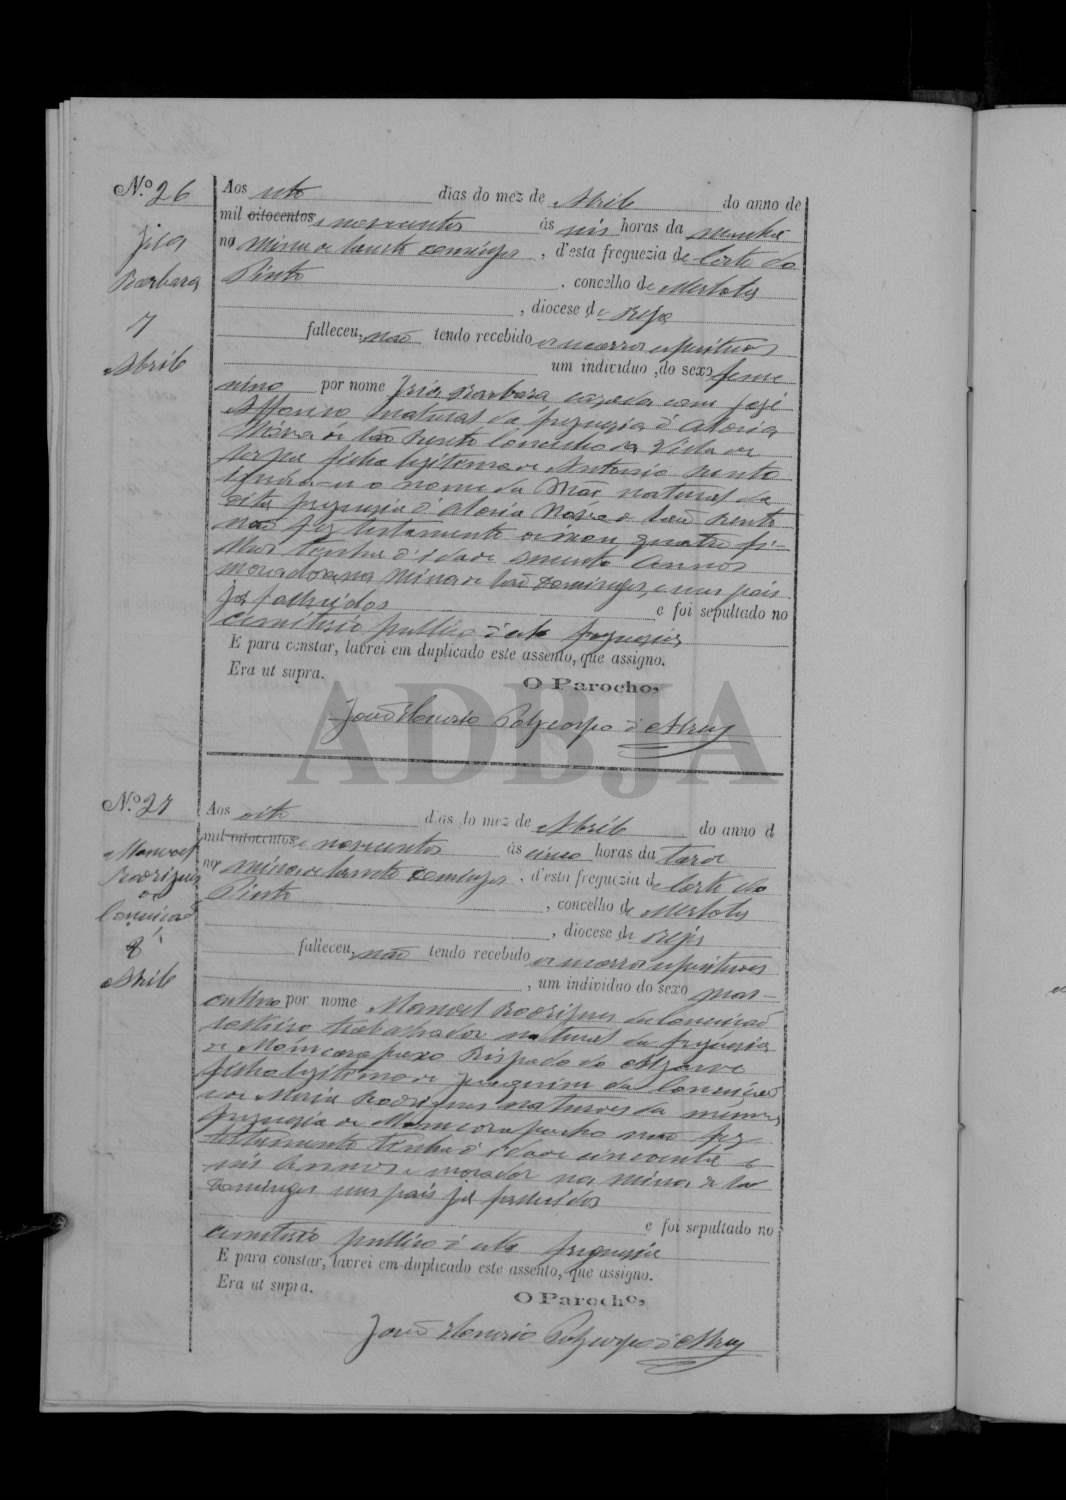 N.º 26
Barbara
7
Abril
Aos dias do mez de Abril do anno de
mil oitocentos e novecentos ás seis horas da manhã
na Mina de Domingos, d'esta freguezia de Corte do
Pinto, concelho de Mertola
, diocese de Beja
falleceu, não tendo recebido os espirituaes
um individuo, do sexo femi
nino por nome Barbara cazada com José
Affonso natural da freguesia d'Aldeia
Nova de São Bento Concelho da Villa de
Serpa filha legitima de Antonio Bento
ignora-se o nome da Mãe natural da
dita freguesia d'Aldeia Nova de São Bento
não fez testamento deixou quatro fi-
lhos tinha d'idade annos
moradora na Mina de São Domingos, e seus pais
já fallecidos e foi sepultado no
cemiterio publico d'esta freguesia
E para constar, lavrei em duplicado este assento, que assigno.
Era ut supra.
O Parocho,
João Polycarpo d'
ADBJA
N.º 27
Manoel
Rodrigues
da
Conceicão
8
Abril
Aos oito dias do mez de Abril do anno d
mil oitocentos e novecentos ás cinco horas da tarde
na mina de Domingos, d'esta freguezia de Corte do
Pinto, concelho de Mertola
, diocese de Beja
falleceu, não tendo recebido os espirituaes
, um individuo do sexo mas-
culino por nome Manoel Rodrigues da Conceicão
solteiro trabalhador natural da freguesia
de Moncarapaxo Bispado do Algarve
filho legitimo de Joaquim da Conceicão
e de Maria Rodrigues naturaes da mesma
freguesia de Moncarapacho não fez
testamento tinha d'idade cincoenta e
seis Annos e morador na mina de São
Domingos seus pais já fallecidos
e foi sepultado no
cemiterio publico d'esta freguesia
E para constar, lavrei em duplicado este assento, que assigno.
Era ut supra.
O Parocho,
João Polycarpo d'